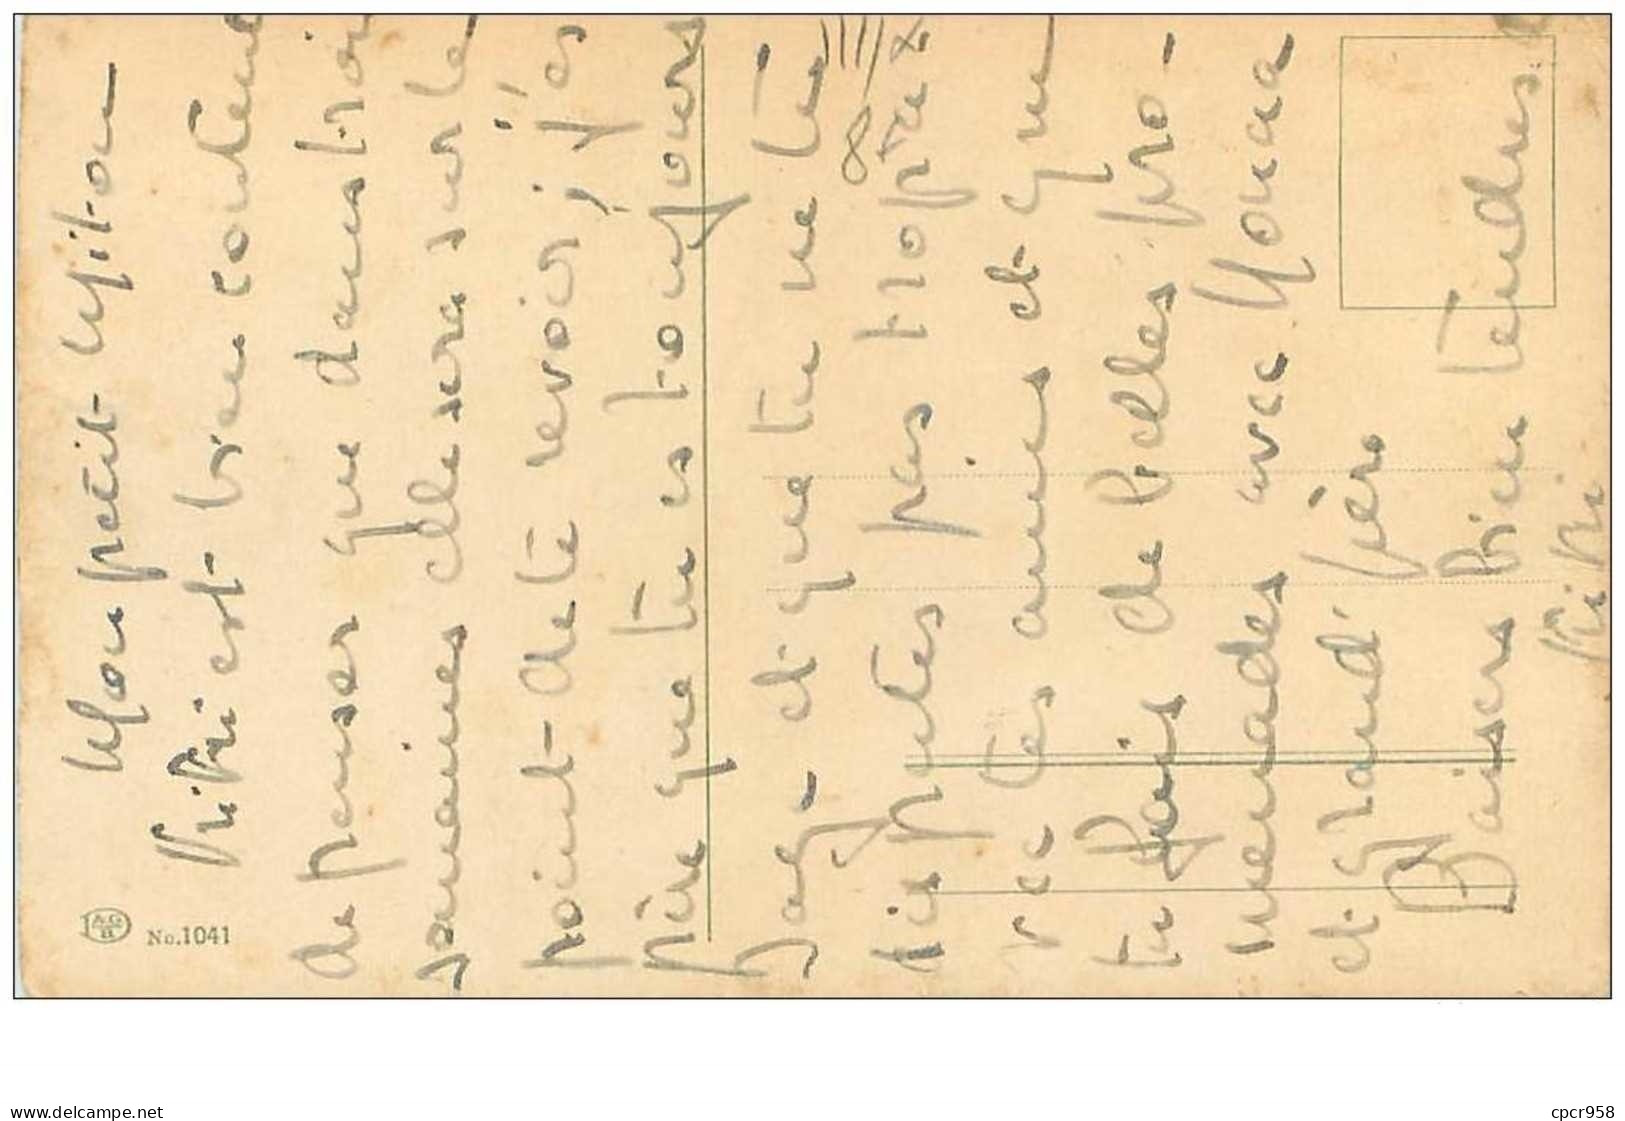 Mon petit Miton
Kiki est bien contente
de penser que dans trois
semaines elle sera sur le
point de te revoir; j'es
père que tu es toujours
sag- et que tu ne te
dis putes pas trop avec
tes amies et que
tu fais de belles pro-
menades avec Mona
et grand' père
Baisers bien tendres
Kiki
A.G. B
No.1041
www.delcampe.net
cpcr958